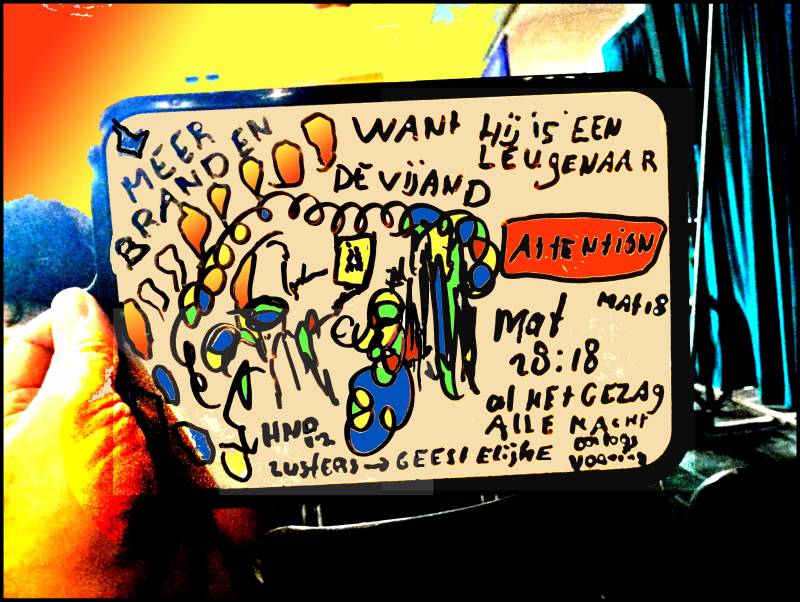 MÉER
BRANDEN
WANt Hij iS EEN
LEUgENAAR
DE VijAND
AttENtiON
MAt 18
Mat
28:18
al HEt GEZAg
ALLE MAcHt
HND 12
ZUStERS → GEESt ELijkE